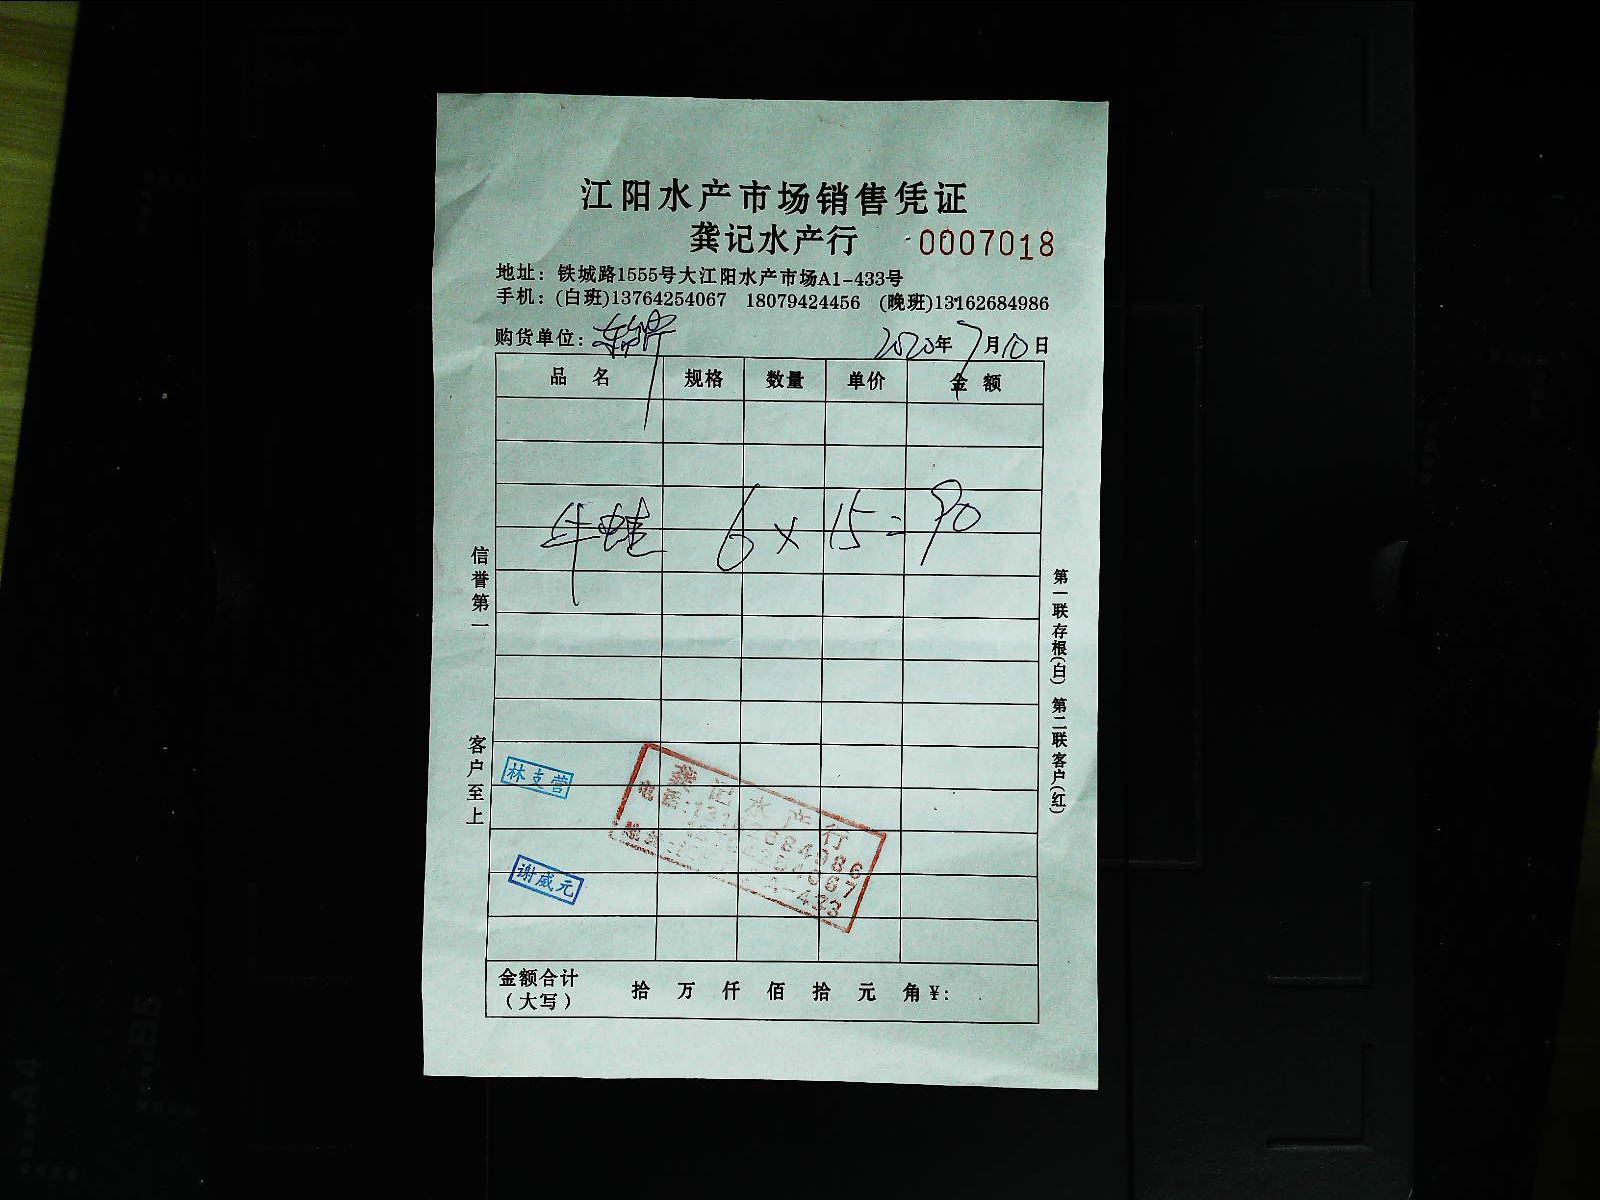 江阳水产市场销售凭证
龚记水产行 0007018
地址：铁城路1555号大江阳水产市场A1-433号
手机：(白班)13764254067 18079424456 (晚班)13162684986
购货单位：
2020年7月10日
品名 规格 数量 单价 金额
牛蛙 6×15=90
信誉第一
客户至上
第一联存根(白) 第二联客户(红)
林支营
龚记水产行
电话:13162684986
13764254067
A-433
谢威元
金额合计
（大写）
拾 万 仟 佰 拾 元 角 ¥: